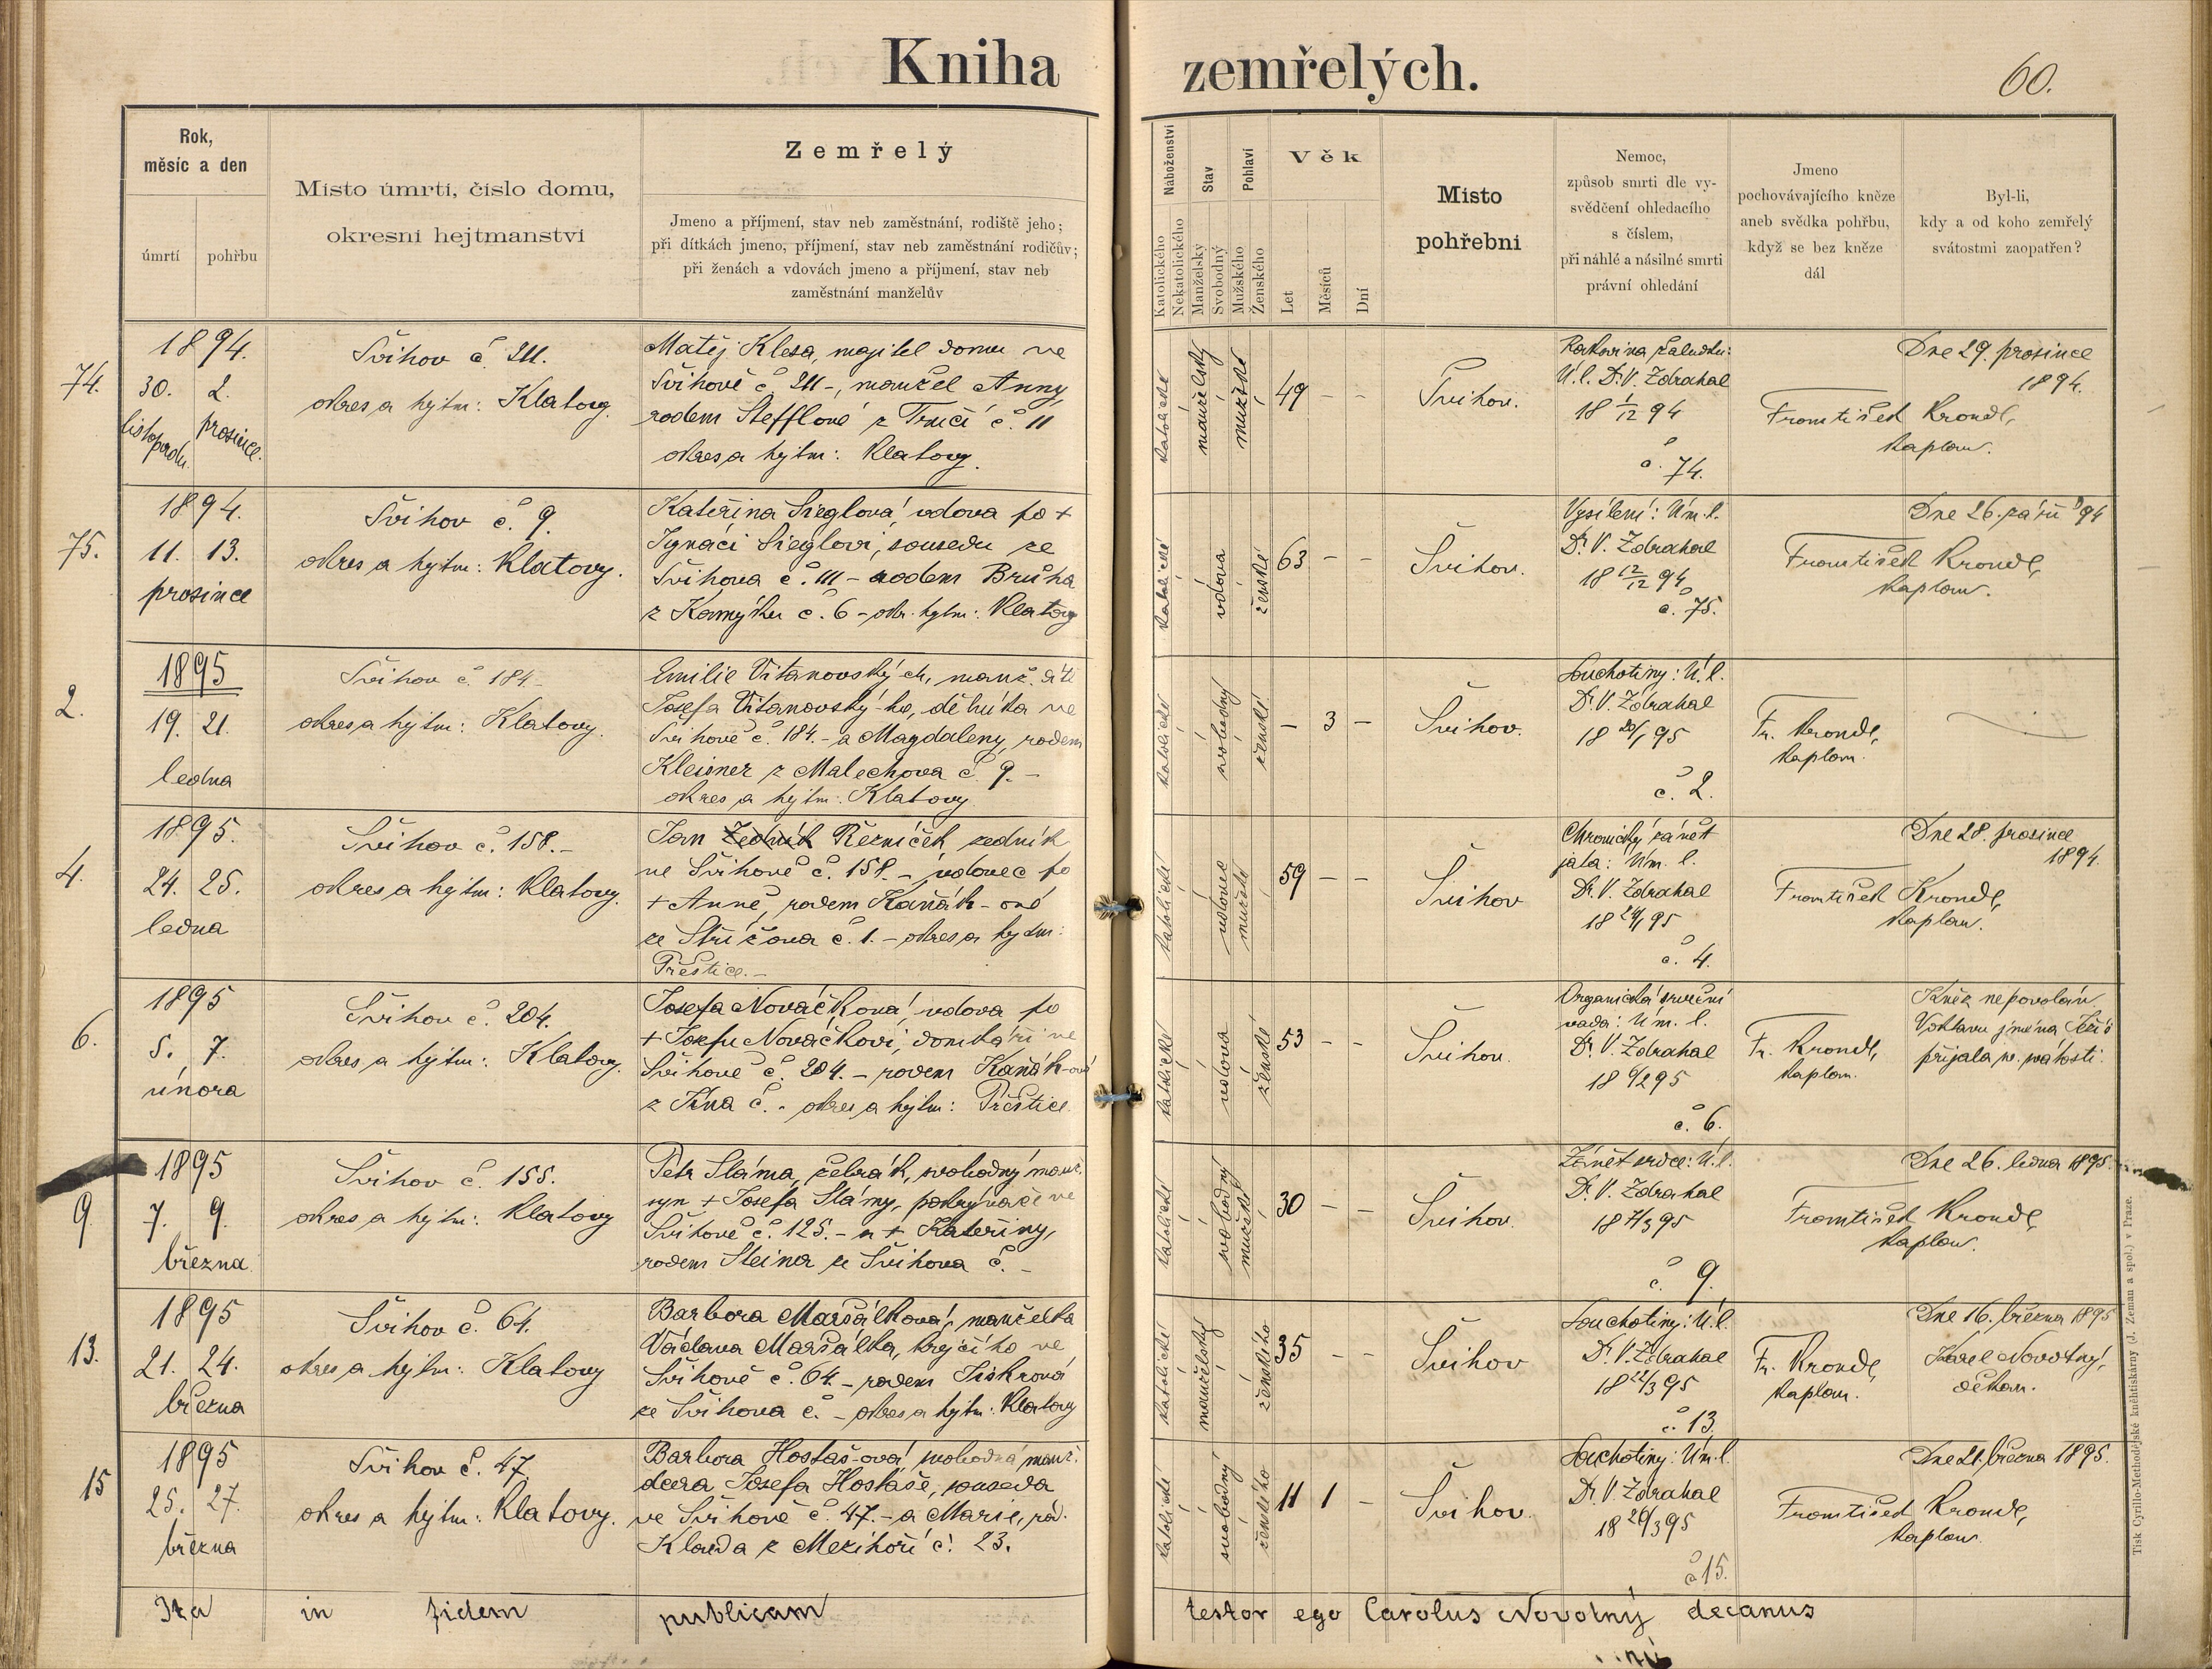 Kniha zemřelých.
60.
Rok,
měsíc a den
úmrtí
pohřbu
Místo úmrtí, číslo domu,
okresní hejtmanství
Zemřelý
Jmeno a příjmení, stav neb zaměstnání, rodiště jeho;
při dítkách jmeno, příjmení, stav neb zaměstnání rodičův;
při ženách a vdovách jmeno a příjmení, stav neb
zaměstnání manželův
Náboženství
Katolického
Nekatolického
Stav
Manželský
Svobodný
Pohlaví
Mužského
Ženského
Věk
Let
Měsíců
Dní
Místo
pohřební
Nemoc,
způsob smrti dle vy-
svědčení ohledacího
s číslem,
při náhlé a násilné smrti
právní ohledání
Jmeno
pochovávajícího kněze
aneb svědka pohřbu,
když se bez kněze
dál
Byl-li,
kdy a od koho zemřelý
svátostmi zaopatřen?
74.
1894.
30. 2.
listopadu prosince.
Švihov č. 211.
okres a hejtm: Klatovy.
Matěj Klesa, majitel domu ve
Švihově č. 211-, manžel Anny,
rodem Stefflové z
č. 11
okres a hejtm: Klatovy.
katolické
manželský
mužské
49 - -
Švihov.
Rakovina žaludku:
Ú.l. Dr. V. Zdrahal
18 1/12 94
č. 74.
František Krondl,
kaplan.
Dne 29. prosince
1894.
75.
1894.
11. 13.
prosince
Švihov č. 9.
okres a hejtm: Klatovy.
Kateřina Sieglová vdova po +
Ignáci Sieglovi, sousedu ze
Švihova č. 111 - rodem Brůha
z Kamýku č. 6 - okr. hejtm: Klatovy
katolické
vdova
ženské
63 - -
Švihov.
Vysílení: Úm. l.
Dr. V. Zdrahal
18 12/12 94
č. 75.
František Krondl,
kaplan.
Dne 26. září 94
2.
1895
19. 21.
ledna
Švihov č. 184.-
okres a hejtm: Klatovy.
Emilie Vitanovských, manž. dítě
Josefa Vitanovský-ho, dělníka ve
Švihově č. 184.- a Magdaleny, rodem
Kleisner z Malechova č. 9.-
okres a hejtm: Klatovy.
katolické
svobodný
ženské
- 3 -
Švihov.
Souchotiny: Ú.l.
Dr. V. Zdrahal
18 20/1 95
č. 2.
Fr. Krondl,
kaplan.
4.
1895.
24. 25.
ledna
Švihov č. 158.-
okres a hejtm: Klatovy.
Jan Zedník Řezníček zedník
ve Švihově č. 158.- vdovec po
+ Anně, rodem Kaňák-ové
ze Střížova č. 1.- okres a hejtm:
Přeštice.-
katolické
vdovec
mužské
59 - -
Švihov
Chronický zánět
jata: Úm. l.
Dr. V. Zdrahal
18 24/1 95
č. 4.
František Krondl,
kaplan.
Dne 28. prosince
1894.
6.
1895
5. 7.
února
Švihov č. 204.
okres a hejtm: Klatovy.
Josefa Nováčková, vdova po
+ Josefu Nováčkovi, domkáři ve
Švihově č. 204.- rodem Kaňák-ové
z
č. - okres a hejtm: Přeštice.
katolické
vdova
ženské
53 - -
Švihov.
Organická srdeční
vada: Úm. l.
Dr. V. Zdrahal
18 6/2 95
č. 6.
Fr. Krondl,
kaplan.
Kněz nepovolán.
přijala sv. svátosti.
9
1895
7. 9.
března
Švihov č. 155.
okres a hejtm: Klatovy
Petr Sláma, žebrák, svobodný manž.
syn + Josefa Slámy, pokrývače ve
Švihově č. 125.- a + Kateřiny,
rodem Steiner ze Švihova č. -
katolické
svobodný
mužské
30 - -
Švihov.
Zánět srdce: Ú.l.
Dr. V. Zdrahal
18 7/3 95
č. 9.
František Krondl,
kaplan.
Dne 26. ledna 1895.
13.
1895
21. 24.
března
Švihov č. 64.
okres a hejtm: Klatovy
Barbora Maršálková, manželka
Václava Maršálka, krejčího ve
Švihově č. 64.- rodem Jiskrová
ze Švihova č. - okres a hejtm: Klatovy
katolické
manželský
ženského
35 - -
Švihov
Souchotiny: Ú.l.
Dr. V. Zdrahal
18 22/3 95
č. 13.
Fr. Krondl,
kaplan.
Dne 16. března 1895
Karel Novotný,
děkan.
15
1895
25. 27.
března
Švihov č. 47.
okres a hejtm: Klatovy.
Barbora Hostaš-ová svobodná manž.
dcera Josefa Hostaše, souseda
ve Švihově č. 47.- a Marie, roz.
Klauda z Mezihoří č. 23.
katolické
svobodný
ženského
11 1 -
Švihov.
Souchotiny: Úm. l.
Dr. V. Zdrahal
18 26/3 95
č 15.
František Krondl,
kaplan.
Dne 21. března 1895.
Ita in fidem publicam testor ego Carolus Novotný decanus
Tisk Cyrillo-Methodějské knihtiskárny (J. Zeman a spol.) v Praze.